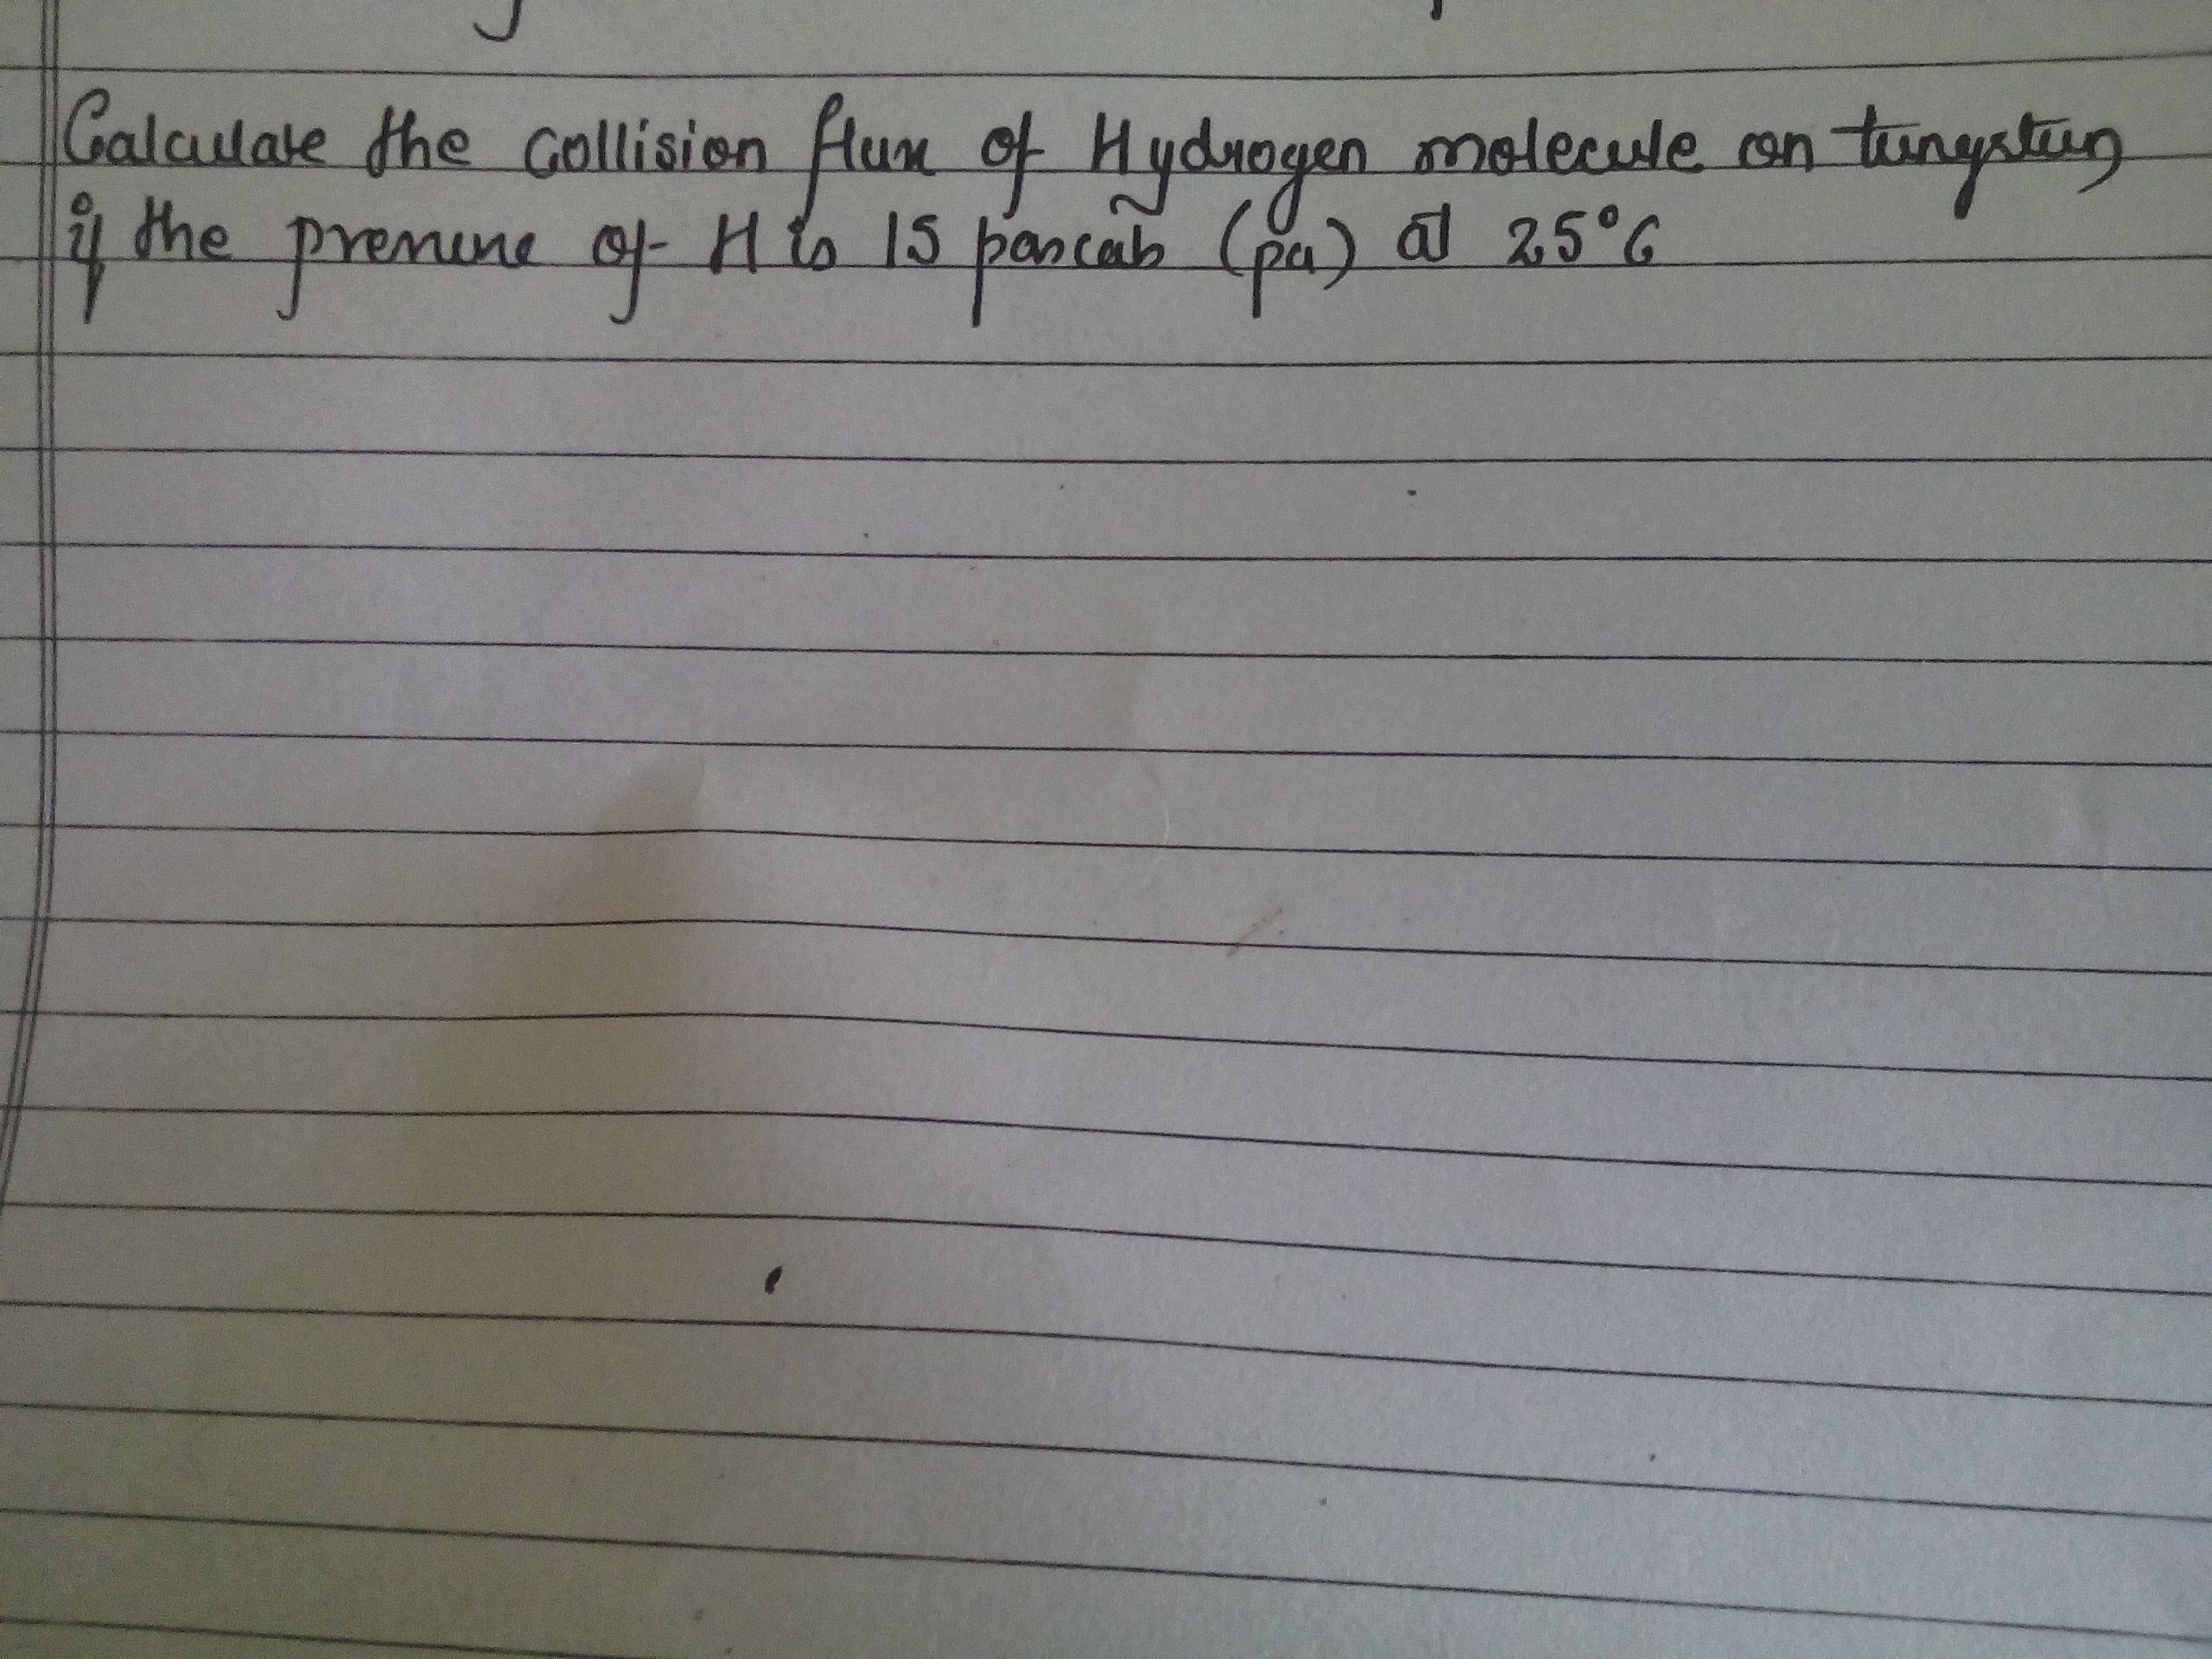 Calculate the collision flux of Hydrogen molecule on tungsten
if the pressure of H is 15 pascals (pa) at 25°C